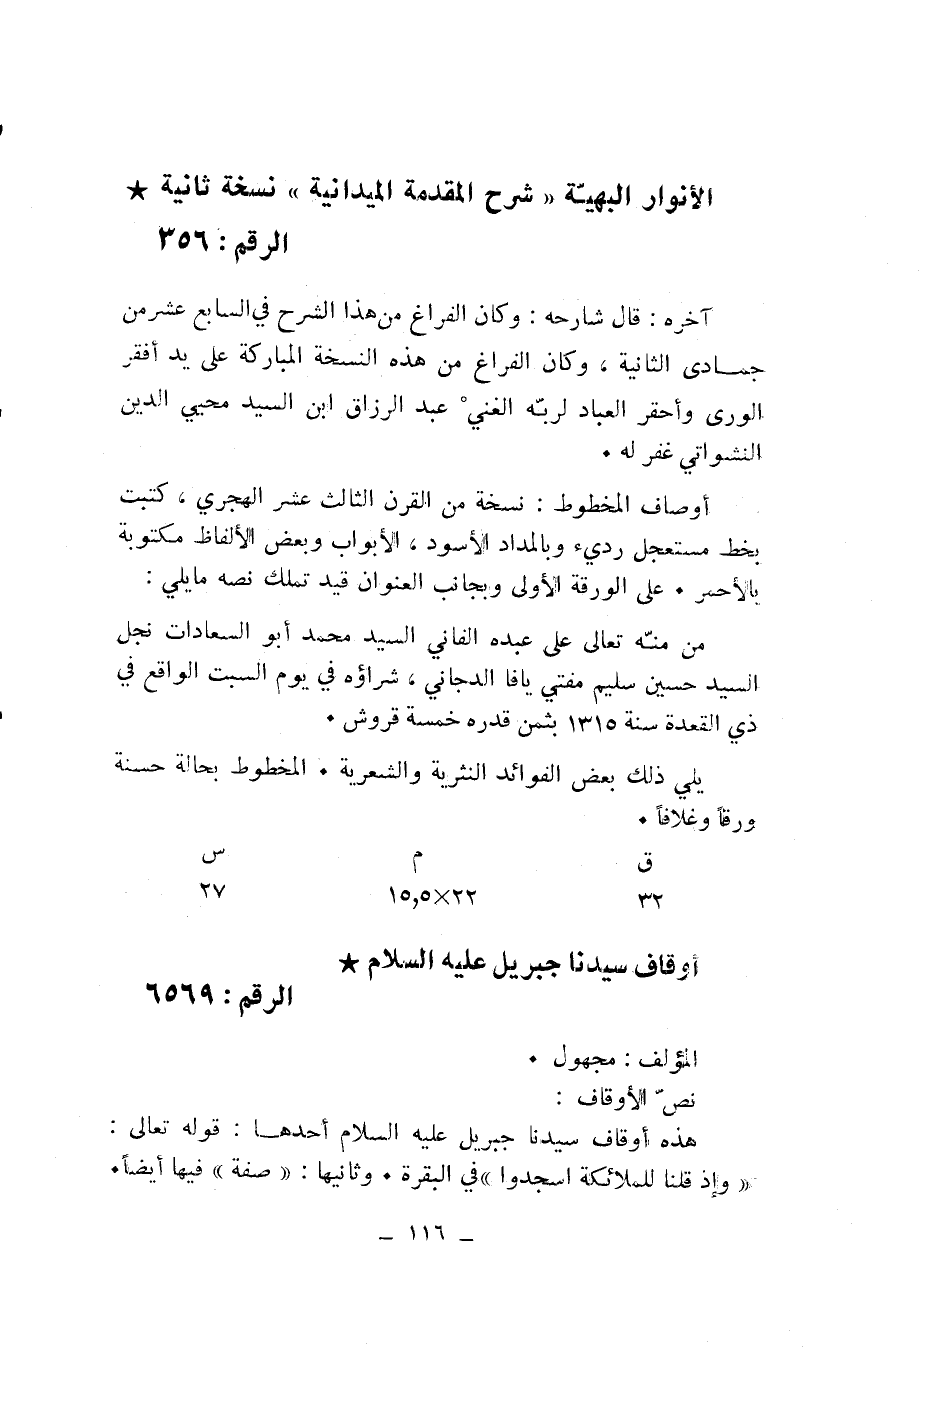 الأنوار البهيّة « شرح المقدمة الميدانية » نسخة ثانية ★
الرقم : ٣٥٦
آخره : قال شارحه : وكان الفراغ من هذا الشرح في السابع عشر من
جمـادى الثانية ، وكان الفراغ من هذه النسخة المباركة على يد أفقر
الورى وأحقر العباد لربّه الغنيْ عبد الرزاق ابن السيد محيي الدين
النشواتي غفر له ٠
أوصاف المخطوط : نسخة من القرن الثالث عشر الهجري ، كتبت
بخط مستعجل رديء وبالمداد الأسود ، الأبواب وبعض الألفاظ مكتوبة
بالأحمر ٠ على الورقة الأولى وبجانب العنوان قيد تملك نصه مايلي :
من منّه تعالى على عبده الفاني السيد محمد أبو السعادات نجل
السيد حسين سليم مفتي يافا الدجاني ، شراؤه في يوم السبت الواقع في
ذي القعدة سنة ١٣١٥ بثمن قدره خمسة قروش ٠
يلي ذلك بعض الفوائد النثرية والشعرية ٠ المخطوط بحالة حسنة
ورقاً وغلافاً ٠
ق م س
٣٢ ٢٢×١٥,٥ ٢٧
أوقاف سيدنا جبريل عليه السلام ★
الرقم : ٦٥٦٩
المؤلف : مجهول ٠
نصّ الأوقاف :
هذه أوقاف سيدنا جبريل عليه السلام أحدهـا : قوله تعالى :
« وإذ قلنا للملائكة اسجدوا » في البقرة ٠ وثانيها : « صفة » فيها أيضاً ٠
– ١١٦ –